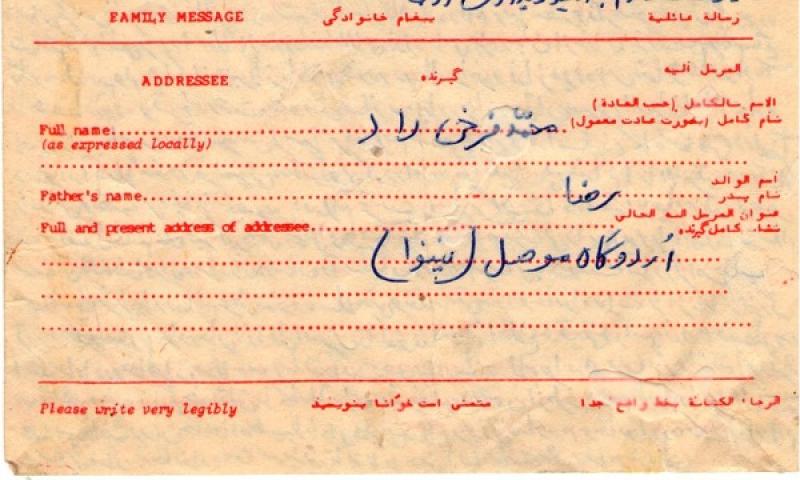 FAMILY MESSAGE پیغام خانوادگی رسالة عائلية
ADDRESSEE گیرنده المرسل الیه
الاسم بالکامل (حسب العادة)
نام کامل (بصورت عادت معمول)
Full name محمد فرخی راد
(as expressed locally)
اسم الوالد
نام پدر
Father's name رضا
عنوان المرسل الیه الحالي
Full and present address of addressee نشانی کامل گیرنده
اُردوگاه موصل (نینوا)
Please write very legibly متمنی است خوانا بنویسید الرجاء الکتابة بخط واضح جدا